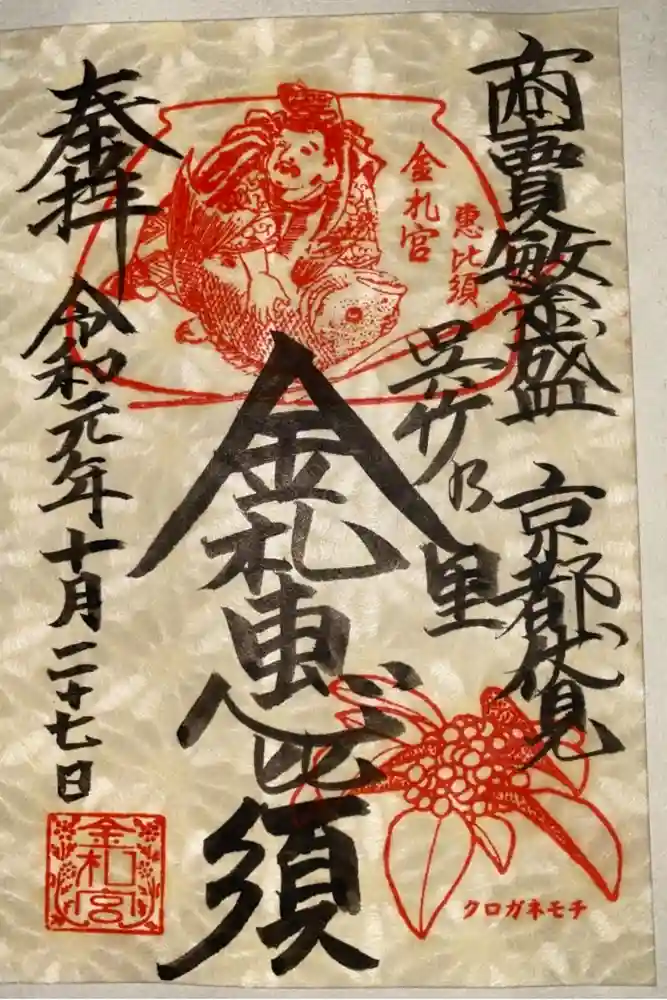 商賣敏盛
京都伏見
呉竹乃里
金札宮
恵比須
金札恵比須
奉拝
令和元年十月二十七日
金札宮
クロガネモチ